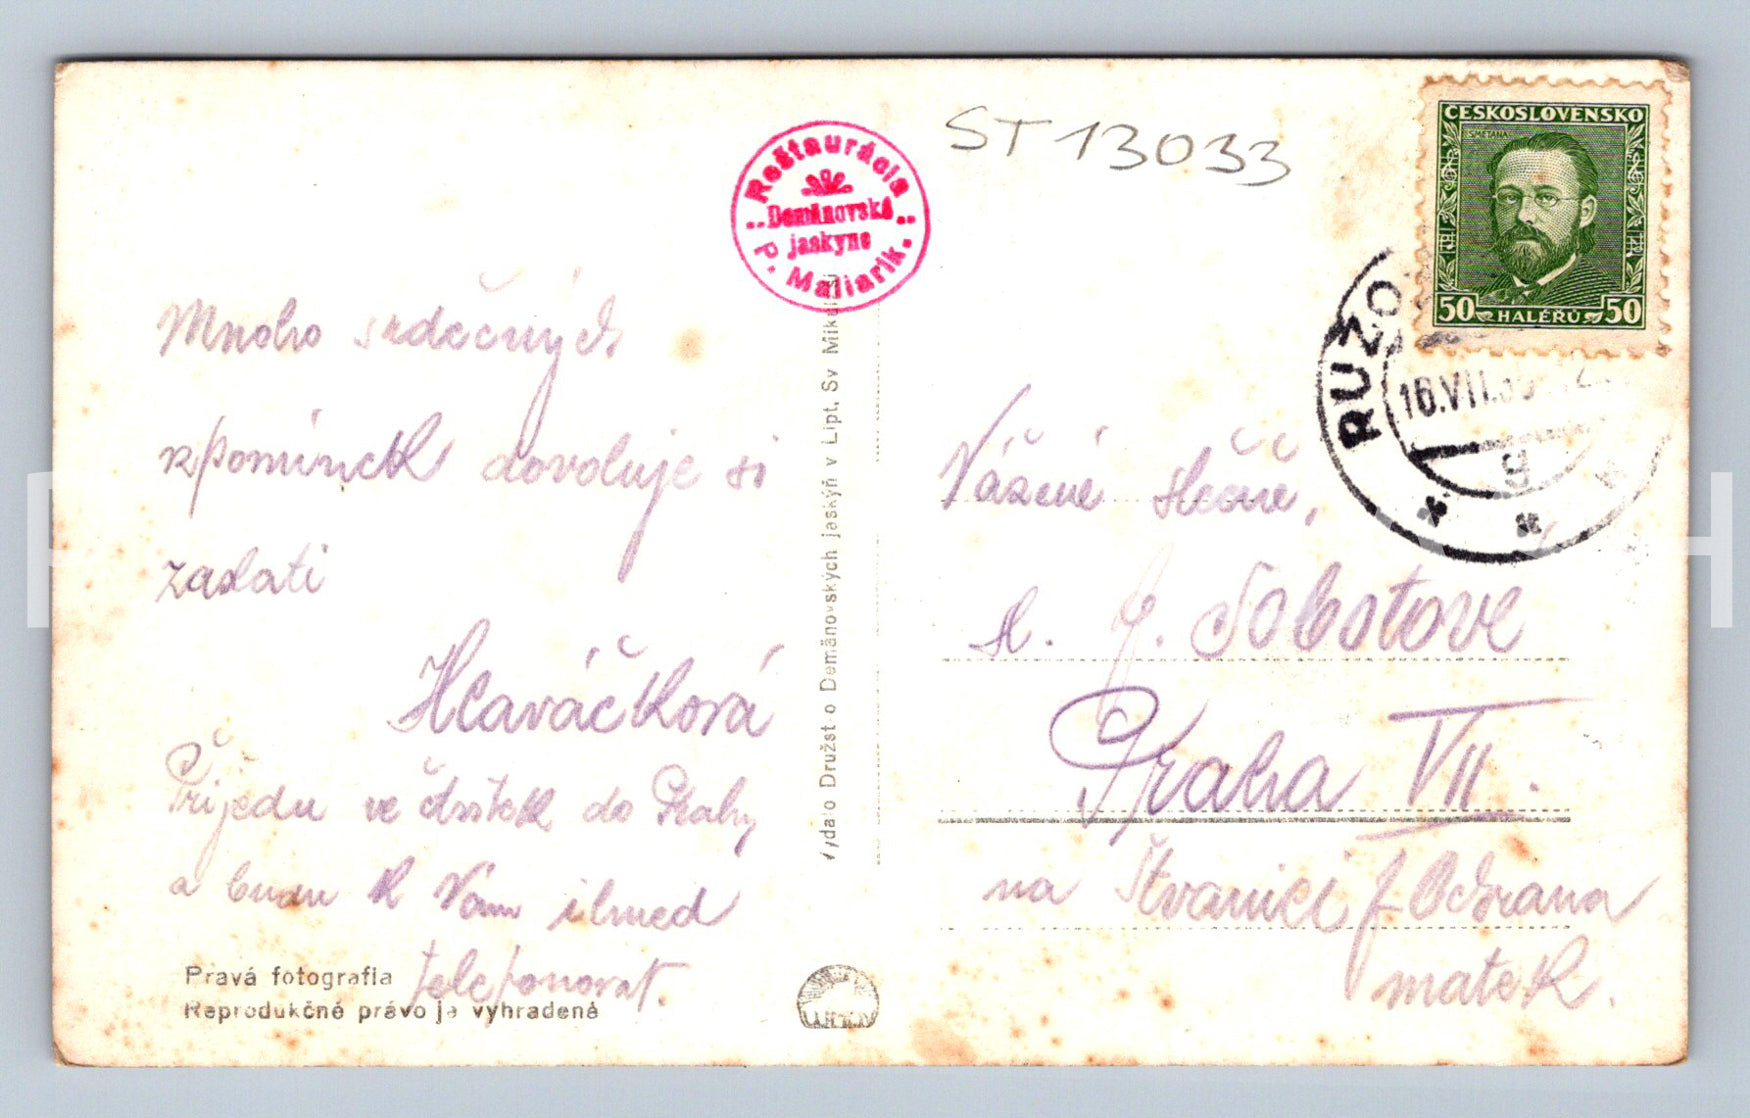 ST 13033
Reštaurácia
Demänovské
jaskyne
P. Maliarik.
ČESKOSLOVENSKO
SMETANA
50 HALÉŘŮ 50
RUZO
16.VII.
9
Mnoho srdečných
vzpomínek dovoluje si
zaslati
Hlaváčková
Přijedu ve čtvrtek do Prahy
a budu k Vám ihned
telefonovat.
Pravá fotografia
Reprodukčné právo je vyhradené
Vydalo Družst o Demänovských jaskýň v Lipt. Sv Mikul
Vážené slečně,
sl. J. Sobotové
Praha VII.
na Štvanici f Ochrana
matek.